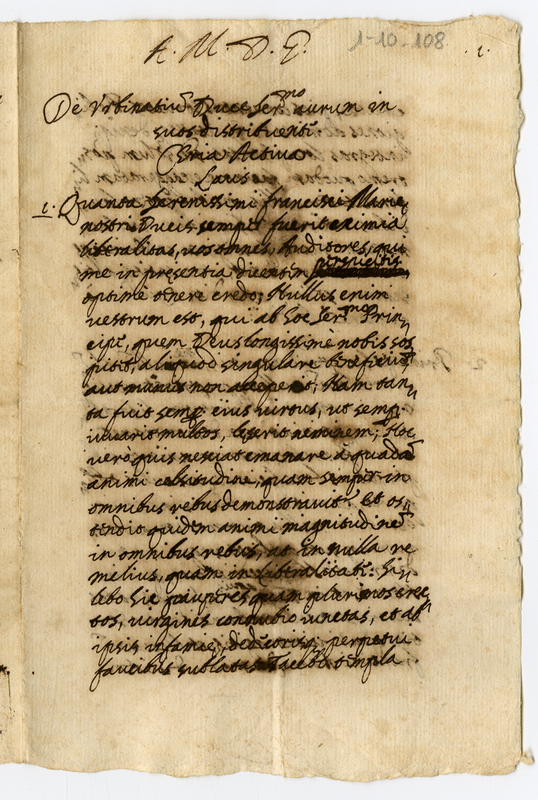 A. M. D. G. 1-10-108 1.
De Vrbinatiũ Duce Ser.mo aurum in
suos distribuenti.
Oria Activa
Laus
1. Quanta Serenissimi francisci Marie,
nostri Ducis semper fuerit eximia
liberalitas, uos omnes, Auditores, qui
me in presentia dicentem perspicitis
optime tenere credo; Nullus enim
uestrum est, qui ab hoc Ser.mo Prin
cipe, quem Deus longissimè nobis sos
pitet, aliquod singulare beneficiũ
aut munus non acceperit; Nam tan
ta fuit semp. eius uirtus, ut semp.
iuuarit multos, leserit neminem; Hoc
verò quis nesciat emanare à quadã
animi celsitudine, quam semper in
omnibus rebus demonstrauit? Et os
tendit quidem animi magnitudinẽ
in omnibus rebus, at in nulla re
melius, quam in liberalitate. Si
lebo hic pauperes quam plurimos erec
tos, uirgines connubio iunctas, et ab
ipsis infamie, dedecorisq; perpetui
faucibus sublatas. Tacebo templa